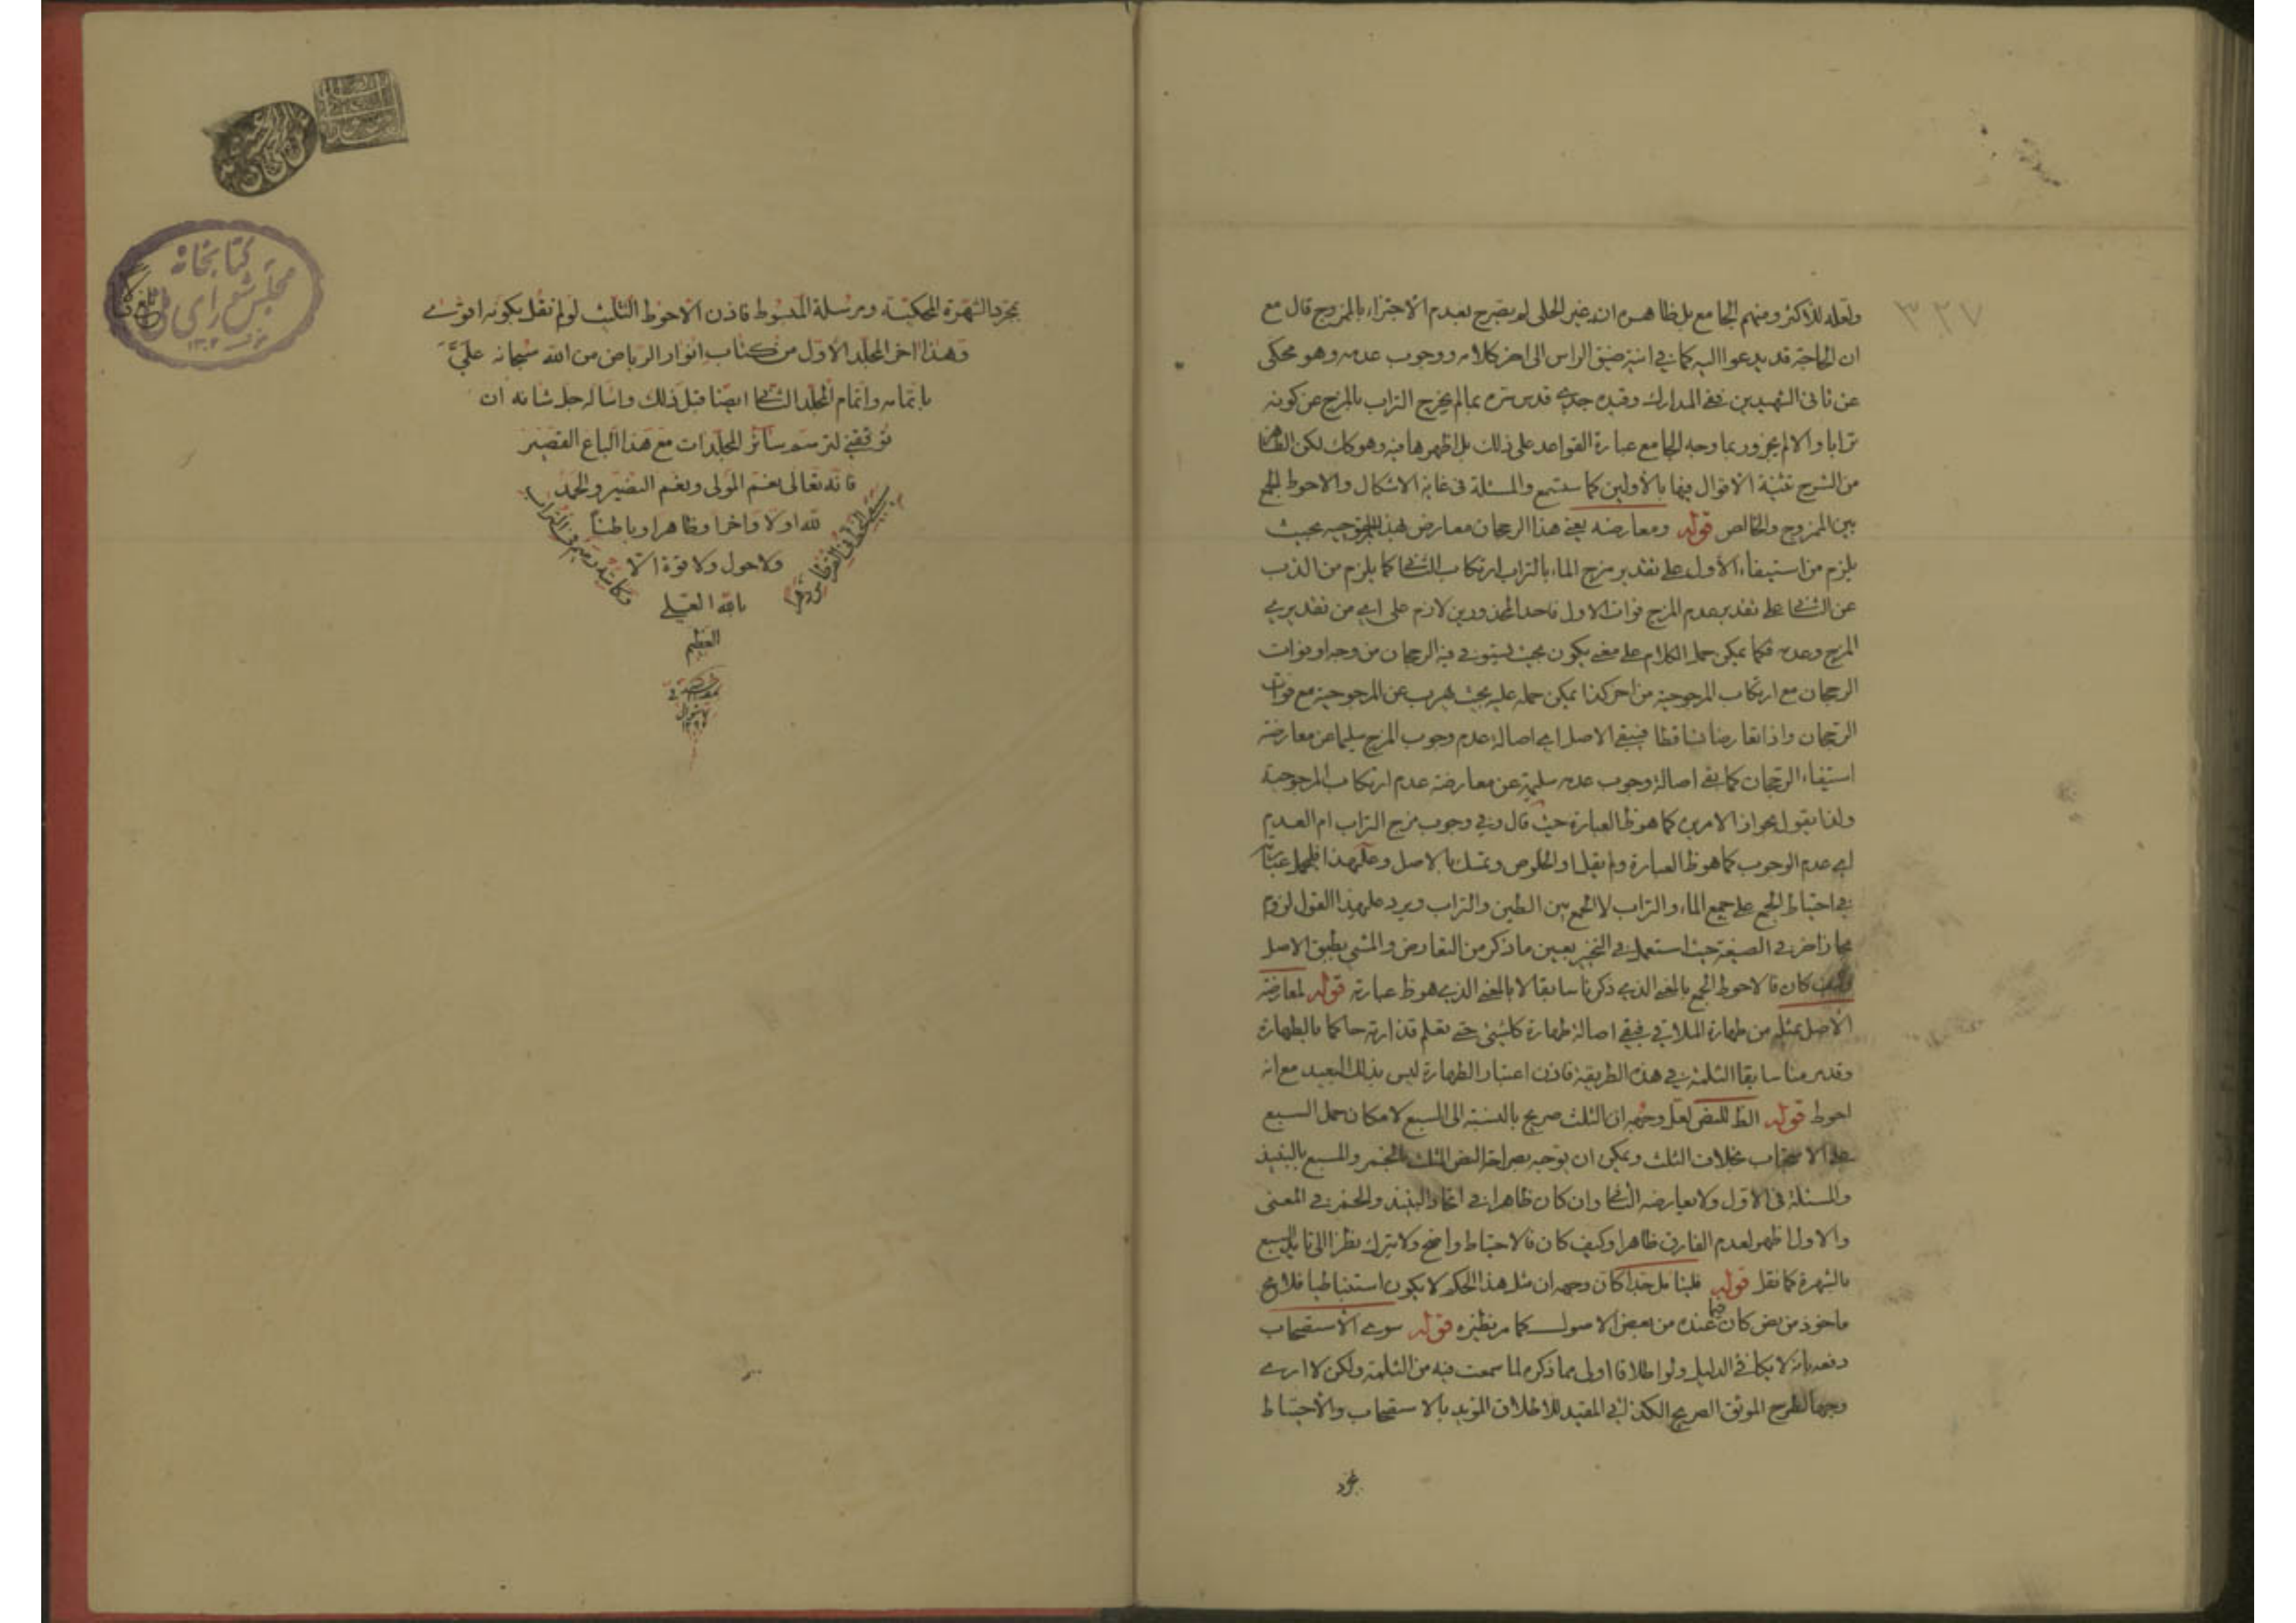 ٣٢٧
ولعله للاكثر ومنهم الجامع بل ظاهره ان غير الحلى لم يصرح بعدم الاجتزاء بالمزوج قال مع
ان الحاجة قد يدعوا اليه كما فى انية ضيق الراس الى اخر كلامه ووجوب عدمه وهو محكى
عن ثانى الشهيدين ففى المدارك وقيده جدى قدس سره بما لم يخرج التراب بالمزج عن كونه
ترابا والا لم يجز وربما وجه الجامع عبارة القواعد على ذلك بل اظهرها فيه وهو كك لكن
من الشرح تثنية الاقوال فيها بالأولين كما ستسمع والمسئلة فى غاية الاشكال والاحوط الجمع
بين الممزوج والخالص قوله ومعارضه يعنى هذا الرجحان معارض بهذا التوجيه بحيث
يلزم من استيفاء الأول على تقدير مزج الماء بالتراب ارتكاب الثانى كما يلزم من الذب
عن الثانى على تقدير عدم المزج فوات الاول فاحد المحذورين لازم على اى من تقديرى
المزج وعدمه فكما يمكن حمل الكلام على معنى يكون بحيث يستوفى فيه الرجحان من وجه او فوات
الرجحان مع ارتكاب المرجوحية من اخر كذا يمكن حمله عليه بحيث يهرب عن المرجوحية مع فوات
الرجحان واذا تعارضا تساقطا فيبقى الاصل اى اصالة عدم وجوب المزج سليما عن معارضة
استيفاء الرجحان كما بقى اصالة وجوب عدمه سليمة عن معارضة عدم ارتكاب المرجوحية
ولذا يقول بجواز الامرين كما هو ظ العبارة حيث قال وفى وجوب مزج التراب ام العدم
اى عدم الوجوب كما هو ظ العبارة ولم يقل او الخلوص وتمسك بالاصل وعلى هذا فليحمل
فى احتياط الجمع على جمع الماء والتراب لا الجمع بين الطين والتراب ويرد على هذا القول لزوم
مجاز اخر فى الصيغة حيث استعمل فى التخيير بعين ما ذكر من التعارض والمشى بطبق الاصل
وكيف كان فالاحوط الجمع بالمعنى الذى ذكرنا سابقا لا بالمعنى الذى هو ظ عبارته قوله لمعارضة
الاصل بمثله من طهارة الملاقى فيبقى اصالة طهارة كل شئ حتى تعلم قذارته حاكما بالطهارة
وقد مر منا سابقا الثلمة فى هذه الطريقة فاذن اعتبار الطهارة ليس بذلك البعيد مع انه
احوط قوله الظ للنص لعل وجهه ان الثلث صريح بالنسبة الى السبع لامكان حمل السبع
على الاستحباب بخلاف الثلث ويمكن ان يوجه بصراحة النص الثلث بالخمر والسبع بالنبيذ
والمسئلة فى الاول ولا يعارضه الثانى وان كان ظاهرا فى اتحاد النبيذ والخمر فى المعنى
والاول اظهر لعدم الفارق ظاهرا وكيف كان فالاحتياط واضح ولا يترك نظرا الى تايد السبع
بالشهرة كما نقل قوله فليتامل جدا كان وجهه ان مثل هذا الحكم لا يكون استنباطيا فلا مح
ماخوذ من نص كان فيما عنده من بعض الاصول كما مر نظيره قوله سوى الاستصحاب
دفعه بانه لا يكافى الدليل ولو اطلاقا اولى مما ذكره لما سمعت فيه من الثلمة ولكن لا ارى
وجها لطرح الموثق الصريح الكذائى المقيد للاطلاق المؤيد بالاستصحاب والاحتياط
بمجرد
بمجرد الشهرة المحكية ومرسلة المبسوط فاذن الاحوط الثلث لو لم نقل بكونه اقوى
وهذا اخر المجلد الاول من كتاب انوار الرياض من الله سبحانه علىّ
باتمامه واتمام المجلد الثانى ايضا قبل ذلك واساله جل شانه ان
توفقنى لترسم سائر المجلدات مع هذا الباع القصير
فانه تعالى نعم المولى ونعم النصير والحمد
لله اولا واخرا وظاهرا وباطنا
ولا حول ولا قوة الا
بالله العلى
العظيم
سيبقى الخط فى القرطاس دهرا
وكاتبه رميم فى التراب
كتابخانه
مجلس شوراى ملى